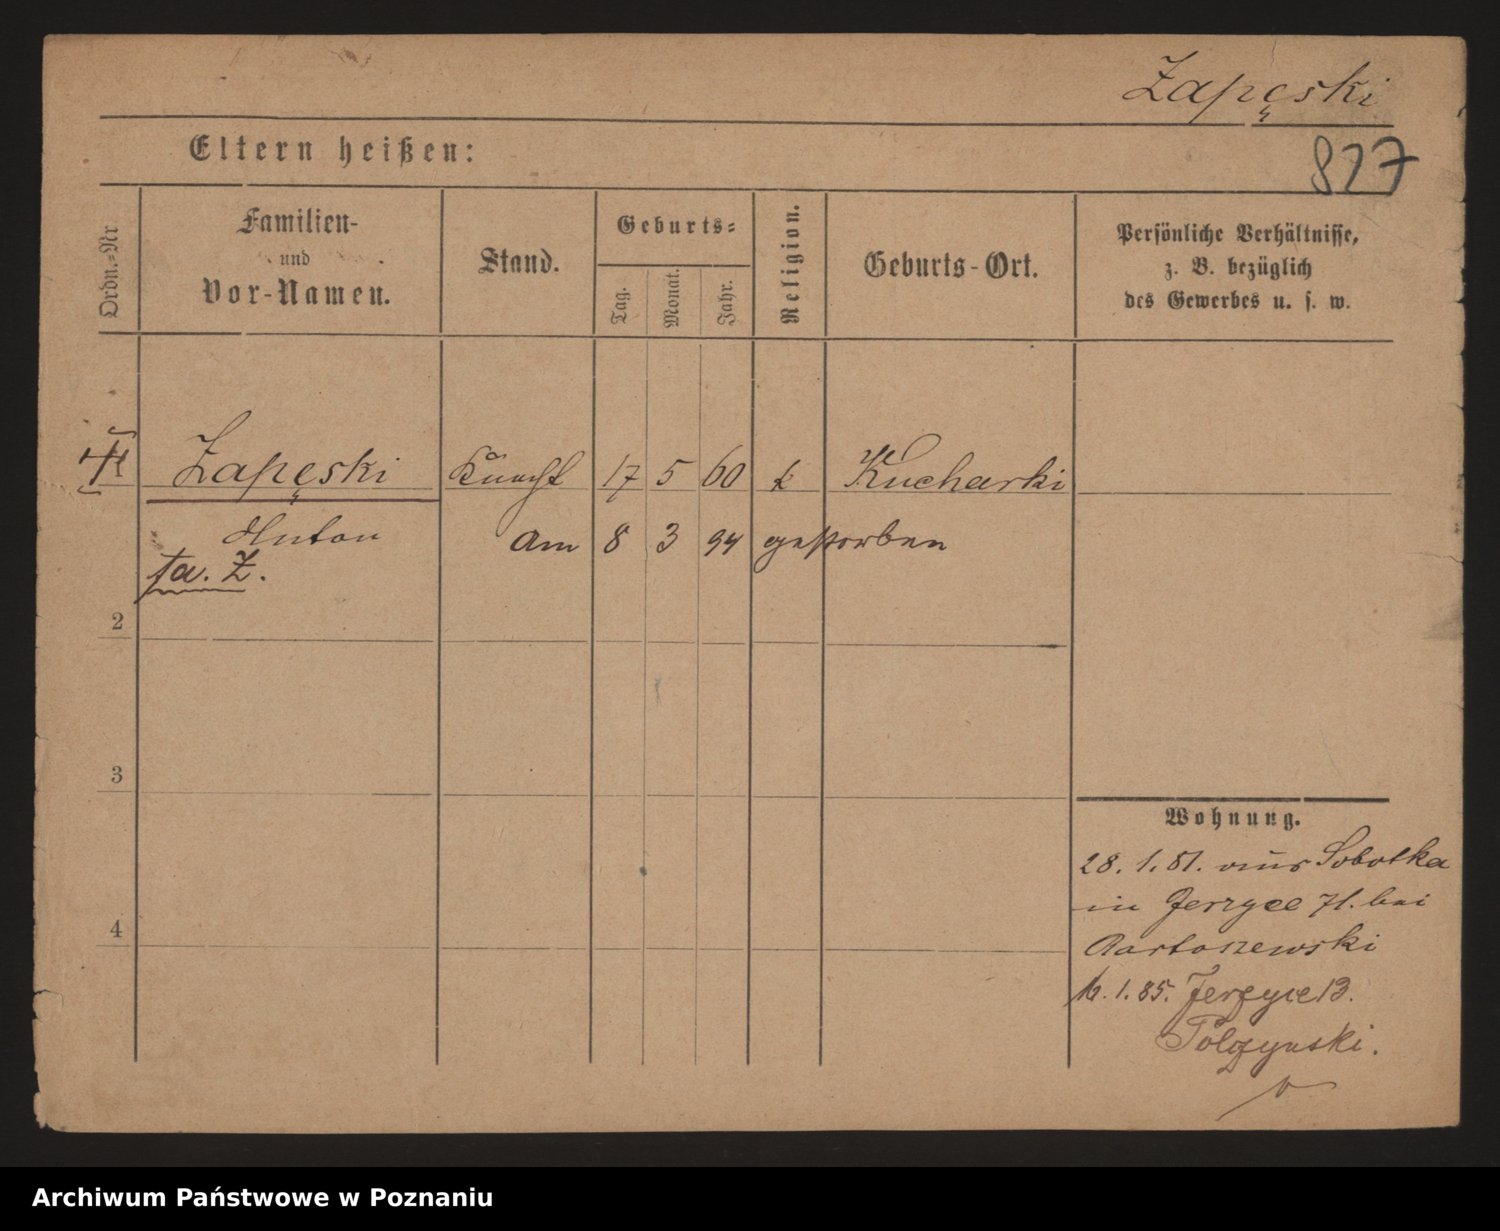 Zapęski
827
Eltern heißen:
Ordn.-Nr
Familien-
und
Vor-Namen.
Stand.
Geburts-
Tag.
Monat.
Jahr.
Religion.
Geburts-Ort.
Persönliche Verhältnisse,
z. B. bezüglich
des Gewerbes u. s. w.
Zapęski Knecht 17 5 60 k Kucharki
Anton am 8 3 94 gestorben
2
3
4
Wohnung.
28. 1. 81. aus Sobotka
in Jerzyce 71. bei
Bartoszewski
1. 85. Jerzyce 13.